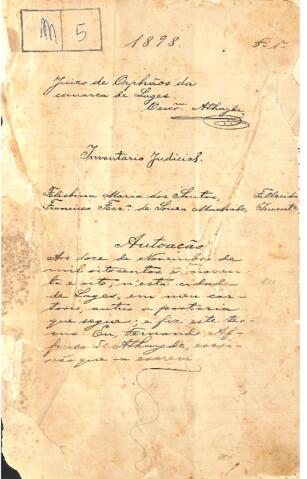 M 5
1898. Fs. 1
Juizo de Orphãos da
comarca de Lages.
Escr.m Athayde
Inventario Judicial.
Felisbina Maria dos Santos, Fallecida
Francisco Ferr.a de Souza Machado, Invent.e
Autoação
Aos doze de Novembro de
mil oitocentos e noven-
ta e oito, n'esta cidade
de Lages, em meu car-
torio, autuo a portaria
que segue; e fiz este ter-
mo. Eu, Fernando Af-
fonso de Athayde, escri-
vão que o escrevi.